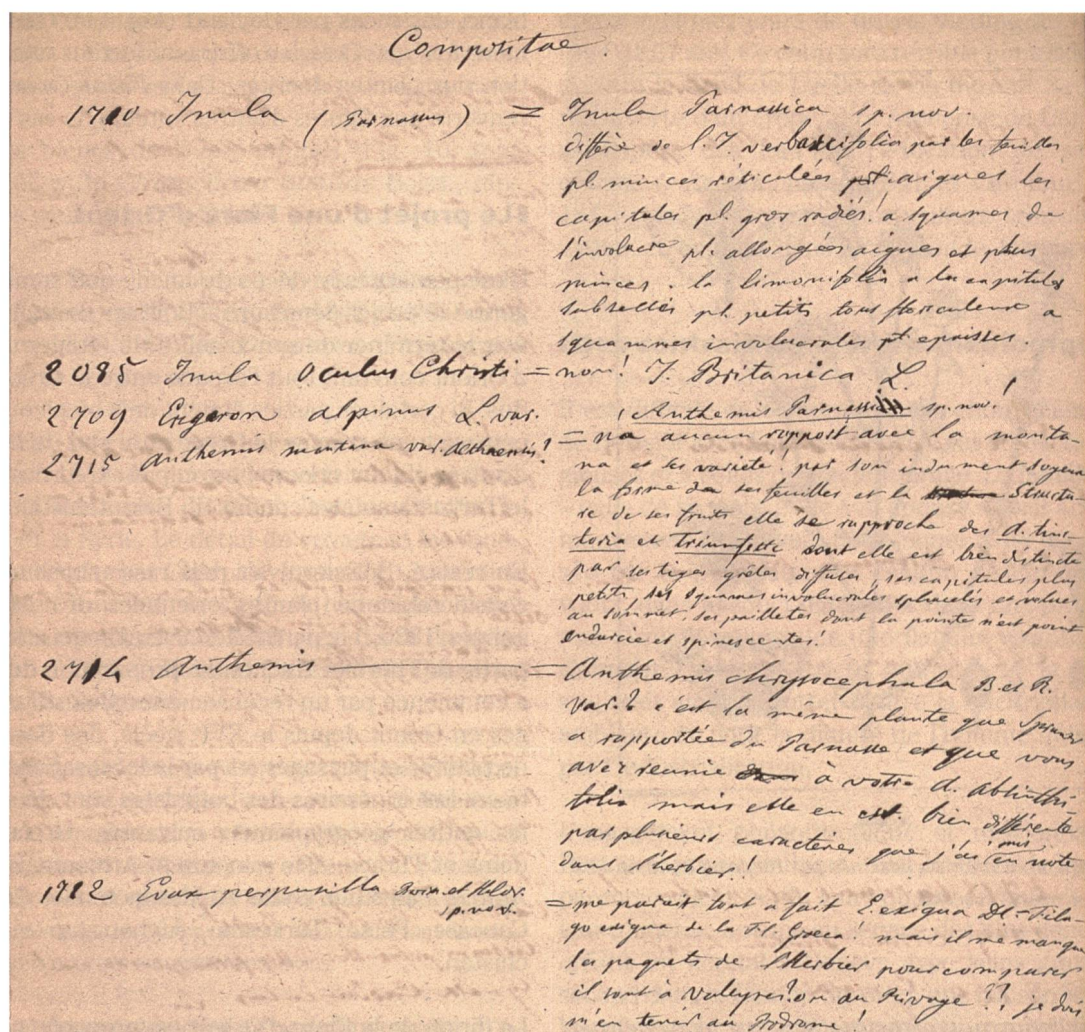 Compositae.
1710 Inula (Parnassus) = Inula Parnassica sp. nov.
diffère de l. I. verbascifolia par les feuilles
pl. minces réticulées pl. aigues les
capitules pl. gros radiés! a squames de
l'involucre pl. allongées aigues et plus
minces. la limonifolia a les capitules
subsessiles pl. petits tous flosculeux a
squammes involucrales pl. epaisses.
2085 Inula Oculus Christi = non! I. Britanica L.
2709 Erigeron alpinus L. var. ! Anthemis Parnassica sp. nov!
2715 Anthemis montana var. = n'a aucun rapport avec la monta-
na et ses varieté! par son indument soyeux
la forme de ses feuilles et la Structu-
re de ses fruits elle se rapproche des A. tinc-
toria et Triumfetti dont elle est bien distincte
par ses tiges grêles diffuses, ses capitules plus
petits, ses squames involucrales sphacelés et velues
au sommet, ses paillettes dont la pointe n'est point
endurcie et spinescentes!
2714 Anthemis = Anthemis chrysocephala B. et R.
var. b c'est la même plante que Spruner
a rapportée du Parnasse et que vous
avez reunie à votre A. Absinthi-
folia mais elle en est bien différente
par plusieurs caractères que j'ai mis en note
dans l'herbier!
1722 Evax perpusilla Boiss. et Heldr. sp. nov. = me parait tout a fait E. exigua DC = Fila-
go exigua de la Fl. Graeca! mais il me manque
les paquets de l'Herbier pour comparer
il sont à Valeyres? ou au Rivage?? je dois
m'en tenir au Prodrome!